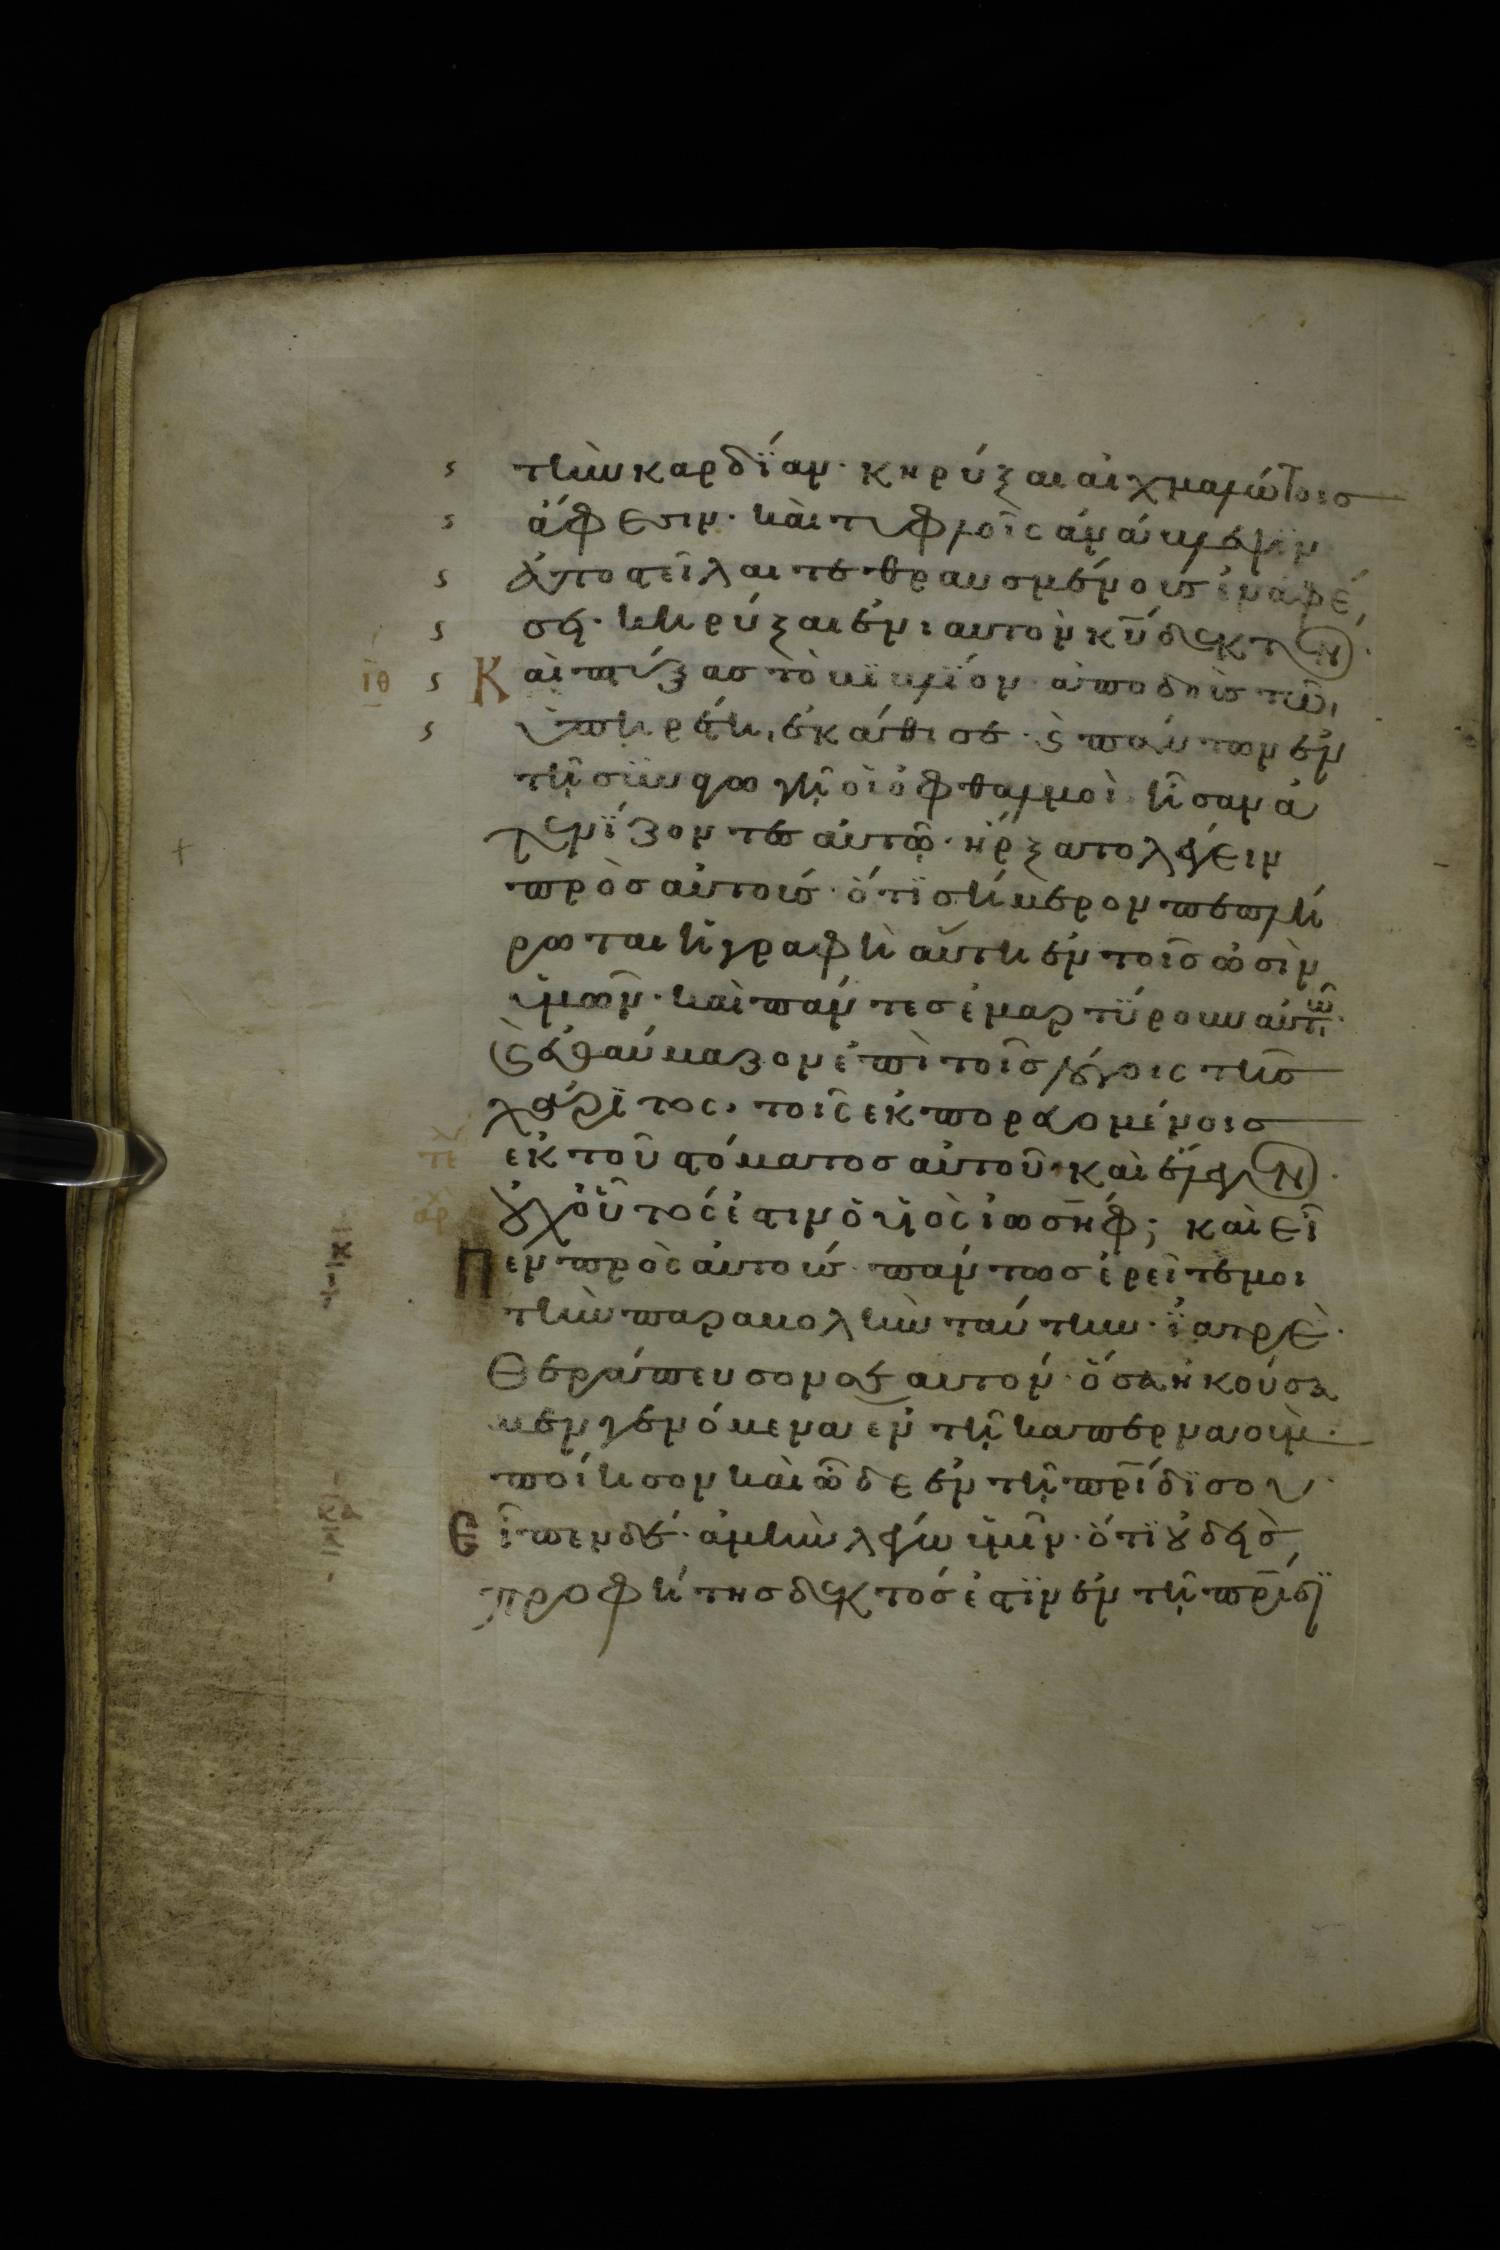 τὴν καρδΐαν· κηρύξαι αἰχμαλώτοις
ἄφεσιν· καὶ τυφλοῖς ἀνάβλεψϊν
ἀποστεῖλαι τεθραυσμένους ἐν ἀφέ
σει· κηρύξαι ἐνιαυτὸν κ̅υ̅ δεκτὸν·
ϊθ Καὶ πτύξας τὸ βϊβλΐον ἀποδοὺς τῶ
ὑπηρέτη, ἐκάθισε· ϗ πάντων ἐν
τῆ συναγωγῆ οἱ ὀφθαλμοὶ ἦσαν ἀ
τενΐζοντες αὐτῶ· ἤρξατο λέγειν
πρὸς αὐτούς· ὅτϊ σήμερον πεπλή
ρωται ἡ γραφὴ αὕτη ἐν τοῖς ὠσὶν
ὑμῶν· καὶ πάντες ἐμαρτύρουν αὐτῶ·
ϗ ἐθαύμαζον ἐπὶ τοῖς λόγοις τῆς
χάρϊτος, τοῖς ἐκπορευομένοις
τε ἐκ τοῦ στόματος αὐτοῦ· καὶ ἔλεγον·
αρχ ȣχ οὗτός ἐστιν ὁ υἱὸς ἰωσήφ; καὶ εἶ
Πεν πρὸς αὐτούς· πάντως ἐρεῖτέ μοι
τὴν παραβολὴν ταύτην· ϊατρὲ·
Θεράπευσον σεαυτόν· ὅσα ἠκούσα
μεν γενόμενα ἐν τῆ καπερναοὺμ·
ποίησον καὶ ὧδε ἐν τῆ π̅ρ̅ίδϊ σου·
Εἶπεν δέ· ἀμὴν λέγω ὑμῖν· ὅτϊ ȣδεὶς
προφήτης δεκτός ἐστϊν ἐν τῆ π̅ρ̅ίδϊ